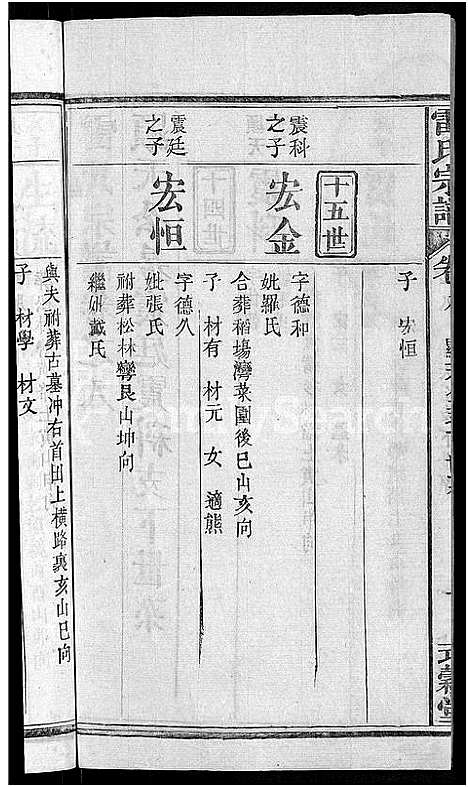 雷氏宗譜
卷
子 宏恒
十五世
震科之子
宏金
字德和
妣羅氏
合葬稻場灣菜園後巳山亥向
子 材有 材元 女 適熊
震廷之子
宏恒
字德久
妣張氏
祔葬松林彎艮山坤向
繼妣戴氏
與夫祔葬古墓冲右首田上橫路裏亥山巳向
子 材學 材文